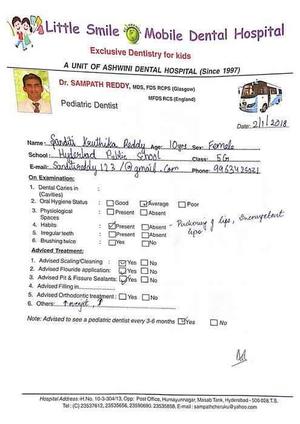 Little Smile Mobile Dental Hospital
Exclusive Dentistry for kids
A UNIT OF ASHWINI DENTAL HOSPITAL (Since 1997)
Dr. SAMPATH REDDY, MDS, FDS RCPS (Glasgow)
MFDS RCS (England)
Pediatric Dentist
Date: 2/1/2018
Name: Keuthika Reddy Age: 10yrs Sex: Female
School: Hyderabad Public School Class: 5G
E-mail: @gmail.com Phone:
On Examination:
1. Dental Caries in : (Cavities)
2. Oral Hygiene Status : Good Average Poor
3. Physiological Spaces : Present Absent
4. Habits : Present Absent - of lips, Incompetent lips
5. Irregular teeth : Present Absent
6. Brushing twice : Yes No
Adviced Treatment:
1. Advised Scaling/Cleaning : Yes No
2. Advised Flouride application: Yes No
3. Advised Pit & Fissure Sealants: Yes No
4. Advised Filling in
5. Advised Orthodontic treatment : Yes No
6. Others:
Note: Advised to see a pediatric dentist every 3-6 months Yes No
Hospital Address: H.No. 10-3-304/13, Opp: Post Office, Humayunnagar, Masab Tank, Hyderabad - 500 028 T.S.
Tel: (C) 23537612, 23535656, 23590690, 23535858, E-mail: sampathcheruku@yahoo.com